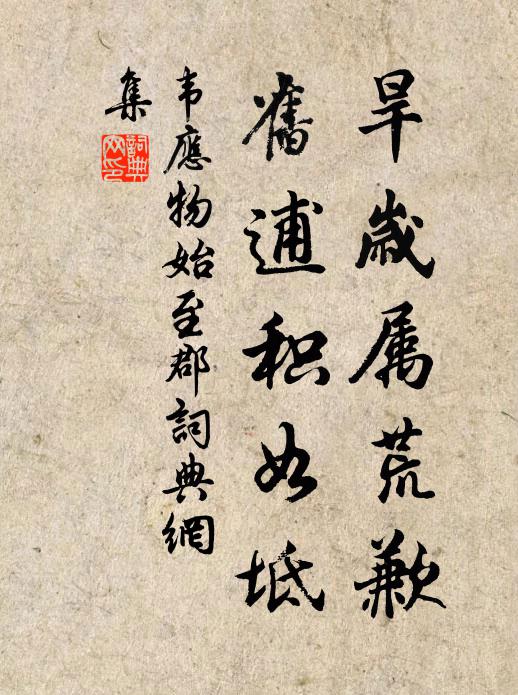 旱歲属荒歉
舊逋积如坻
韦應物始至郡詞典網
集
詞典
网印